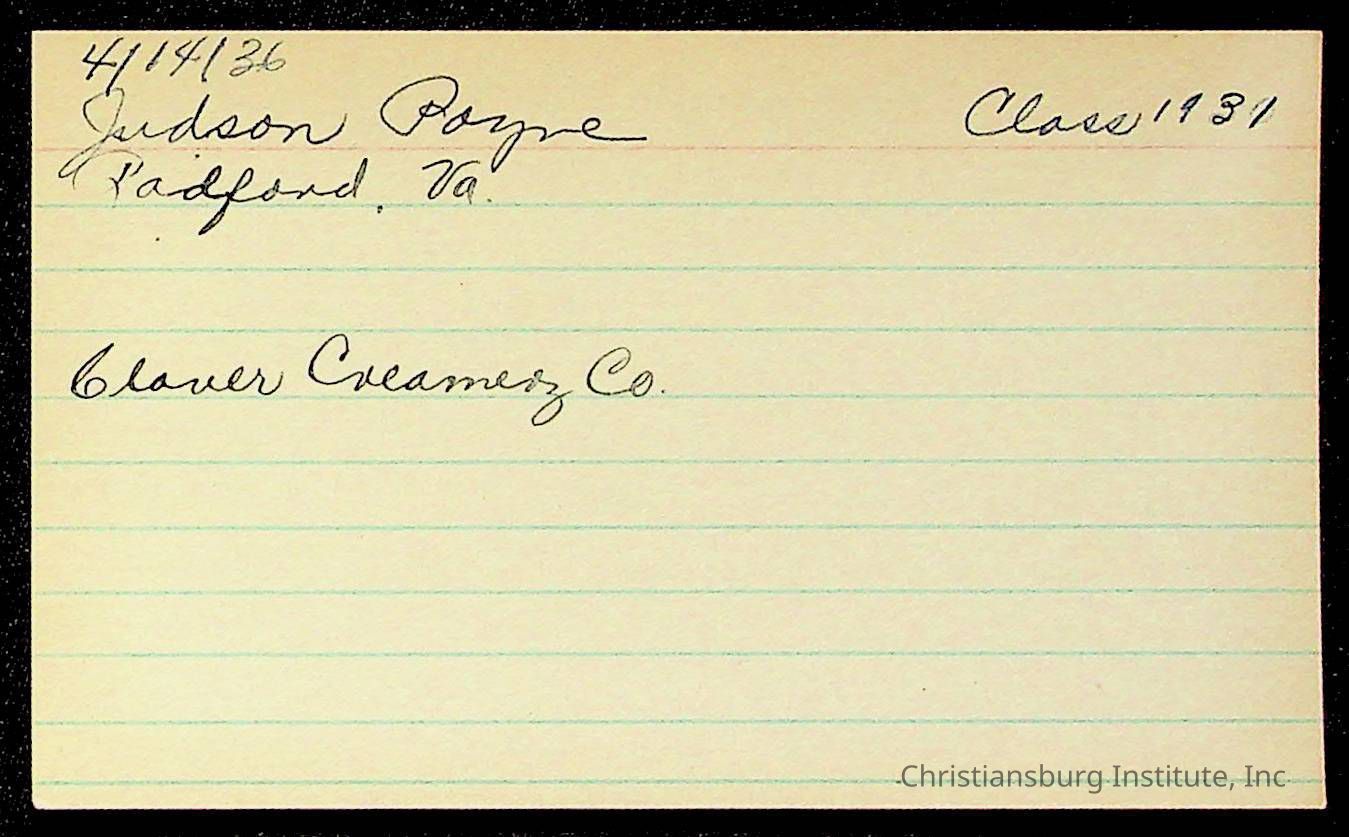 4/14/36
Judson Payne Class 1931
Radford, Va.
Clover Creamery Co.
Christiansburg Institute, Inc